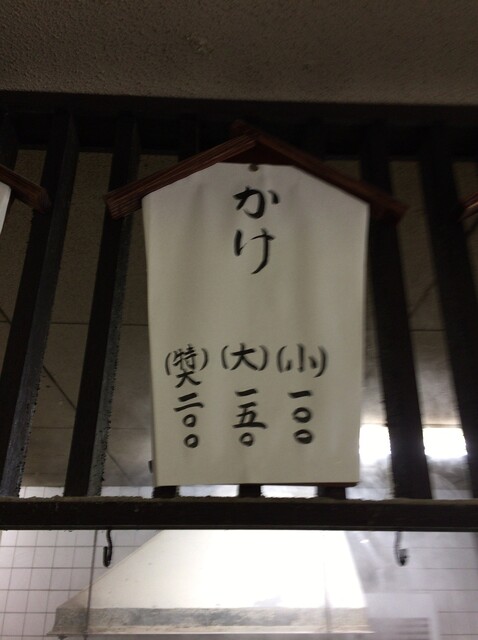 かけ
(小)一〇〇
(大)一五〇
(特大)二〇〇